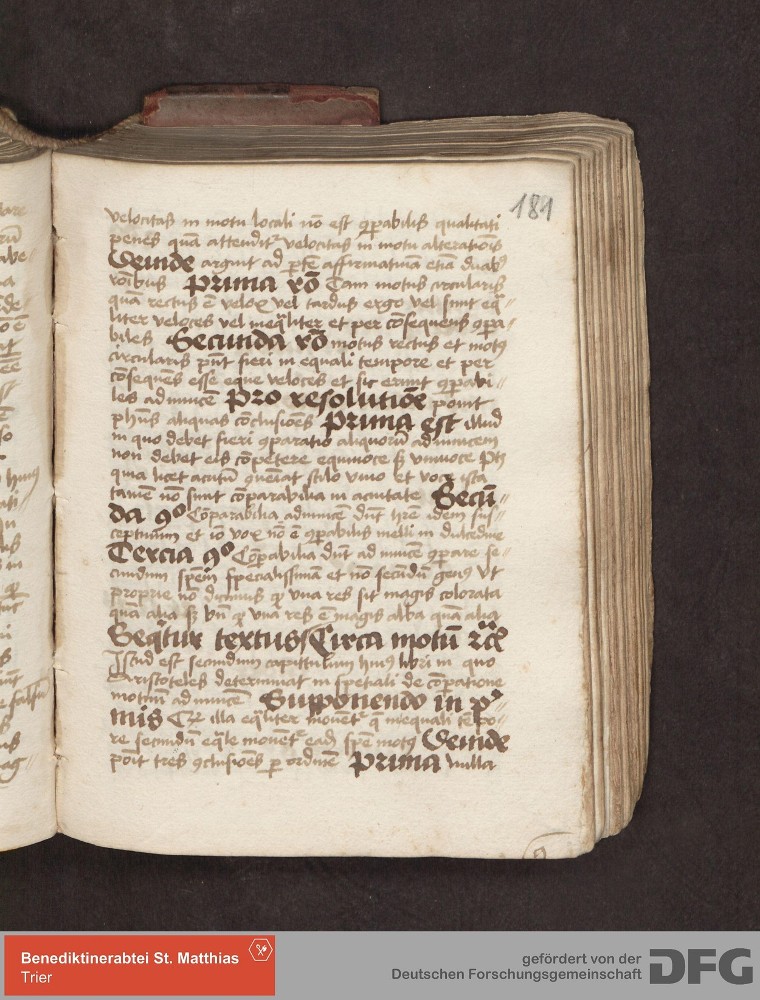 181
velocitas in motu locali nō est ꝯpabilis qualitati
penes quā attendit᷑ velocitas in motu alterationis
Deinde arguit ad ptē affirmatiuā etiā duabꝰ
rōibus Prima rō Tam motus circularis
quā rectus ē velox vel tardus ergo vel sunt eq̄-
liter veloces vel ineq̄liter et per cōsequens ꝯpa-
biles Secunda rō motus rectus et motꝰ
circularis pn̄t fieri in equali tempore et per
cōsequēs esse eque veloces et sic erunt ꝯpabi-
les adinuicē Pro resolutiōe ponit
phūs aliquas cōclusiōes Prima est illud
in quo debet fieri ꝯparatio aliquorū adinuicem
non debet eis cōpetere equiuoce sꝫ vniuoce Ptꝫ
quia licet acutū ꝯueniat stilo vino et voci ista
tamē nō sunt cōparabilia in acuitate Secū-
da ꝯᵒ Cōparabilia adinuicē dn̄t hr̄e idem sus-
ceptiuum et iō vox nō ē ꝯpabilis melli in dulcedine
Tercia ꝯᵒ Cōpabilia dn̄t ad inuicē ꝯpare se-
cundum spēm specialissimā et nō secūdū genꝰ Vt
proprie nō dicimus ꝙ vna res sit magis colorata
quā alia sꝫ bn̄ ꝙ vna res ē magis alba quā alia
Seq̄tur textus Circa motū ⁊cͣ
Istud est secundum capittulum huiꝰ libri in quo
Aristoteles determinat in speciali de cōparatione
motuū adinuicē Supponendo in p-
mis ꝙ illa eq̄liter mouent᷑ q̄ in equali tēpo-
re secundū eq̄le mouent᷑ eadē spē motꝰ Deinde
poīt tres ꝯclusiōes p ordinē Prima nulla
Benediktinerabtei St. Matthias
Trier
gefördert von der
Deutschen Forschungsgemeinschaft
DFG